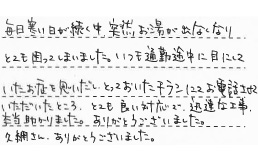 毎日寒い日が続く中突然お湯が出なくなり
とても困ってしまいました。いつも通勤途中に目にして
いたお店を思いだしとっておいたチラシにてお電話させて
いただいたところ、とても良い対応で、迅速な工事、
本当助かりました。ありがとうございました。
久綱さん、ありがとうございました。